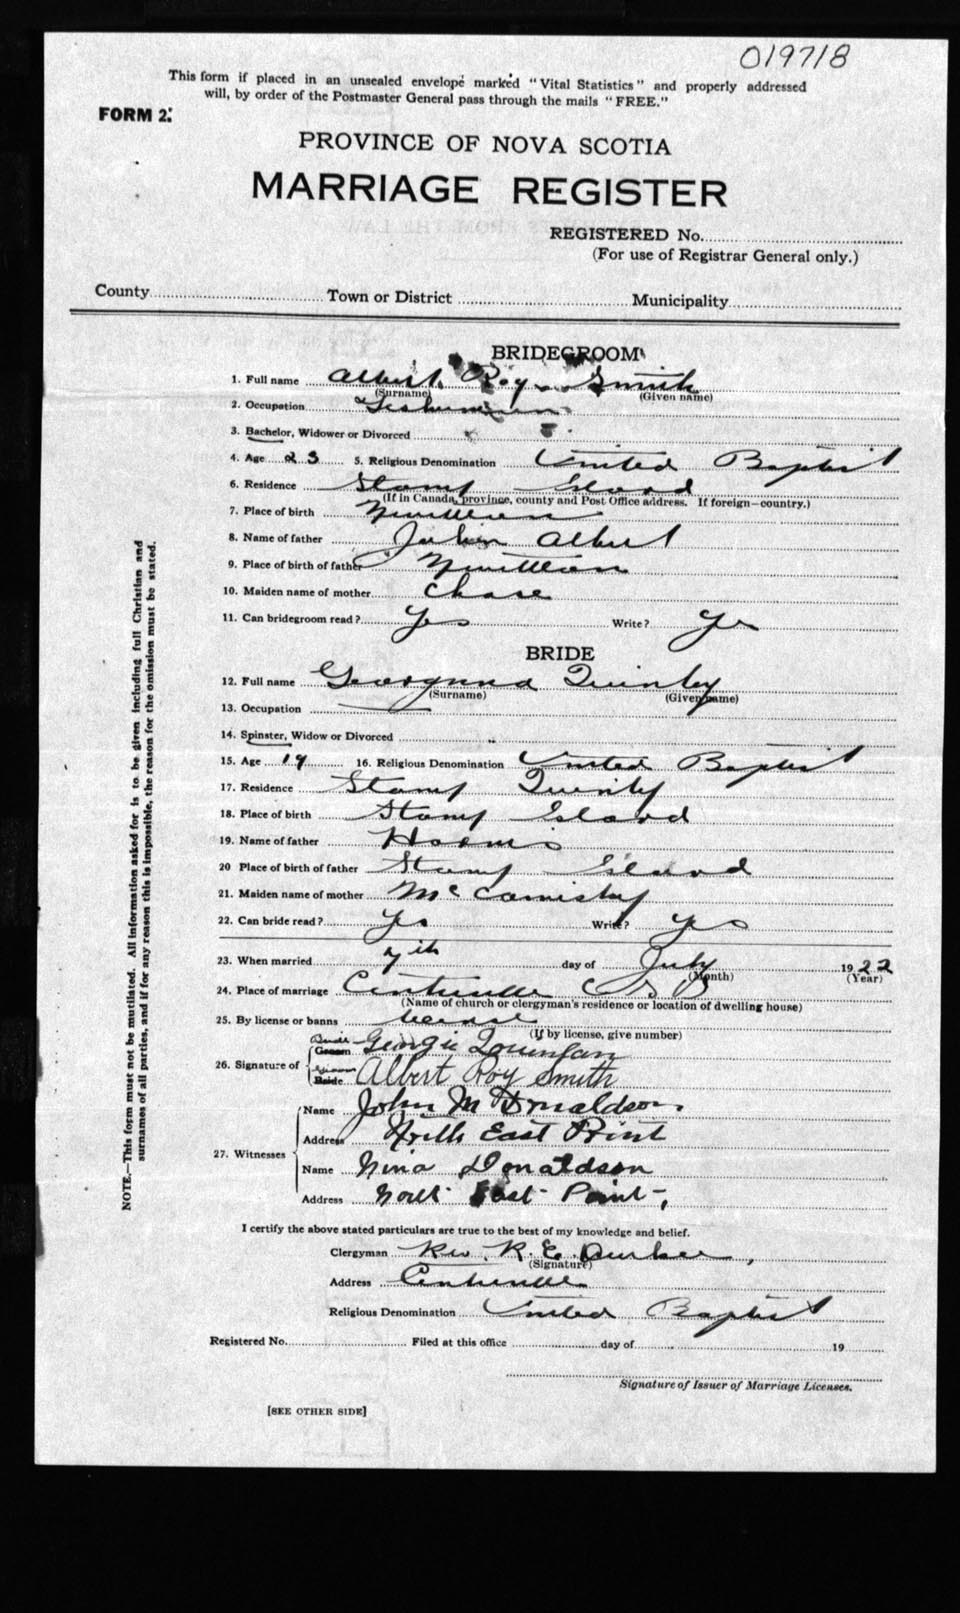 019718
This form if placed in an unsealed envelope marked "Vital Statistics" and properly addressed
will, by order of the Postmaster General pass through the mails "FREE."
FORM 2.
PROVINCE OF NOVA SCOTIA
MARRIAGE REGISTER
REGISTERED No.
(For use of Registrar General only.)
County Town or District Municipality
BRIDEGROOM
1. Full name Albert Roy Smith
(Surname) (Given name)
2. Occupation
3. Bachelor, Widower or Divorced
4. Age 23 5. Religious Denomination United Baptist
6. Residence Stamp Island
(If in Canada, province, county and Post Office address. If foreign—country.)
7. Place of birth
8. Name of father John Albert
9. Place of birth of father
10. Maiden name of mother Chase
11. Can bridegroom read? Yes Write? Yes
BRIDE
12. Full name Georgina Quinby
(Surname) (Given name)
13. Occupation
14. Spinster, Widow or Divorced
15. Age 19 16. Religious Denomination United Baptist
17. Residence Stamp Quinby
18. Place of birth Stamp Island
19. Name of father
20 Place of birth of father Stamp Island
21. Maiden name of mother
22. Can bride read? Yes Write? Yes
23. When married 7th day of July 1922
(Month) (Year)
24. Place of marriage Centreville
(Name of church or clergyman's residence or location of dwelling house)
25. By license or banns license
(If by license, give number)
Bride
Groom Georgie
26. Signature of
Groom
Bride Albert Roy Smith
Name John M Donaldson
Address North East Point
27. Witnesses
Name Nina Donaldson
Address North East Point
I certify the above stated particulars are true to the best of my knowledge and belief.
Clergyman Rev. R. E. Durkee
(Signature)
Address Centreville
Religious Denomination United Baptist
Registered No. Filed at this office day of 19
Signature of Issuer of Marriage Licenses.
[SEE OTHER SIDE]
NOTE.—This form must not be mutilated. All information asked for is to be given including full Christian and
surnames of all parties, and if for any reason this is impossible, the reason for the omission must be stated.